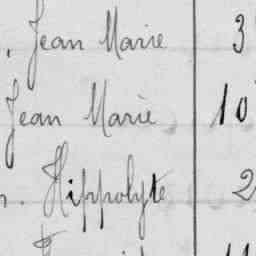 , Jean Marie 3
Jean Marie 10
. Hippolyte 2